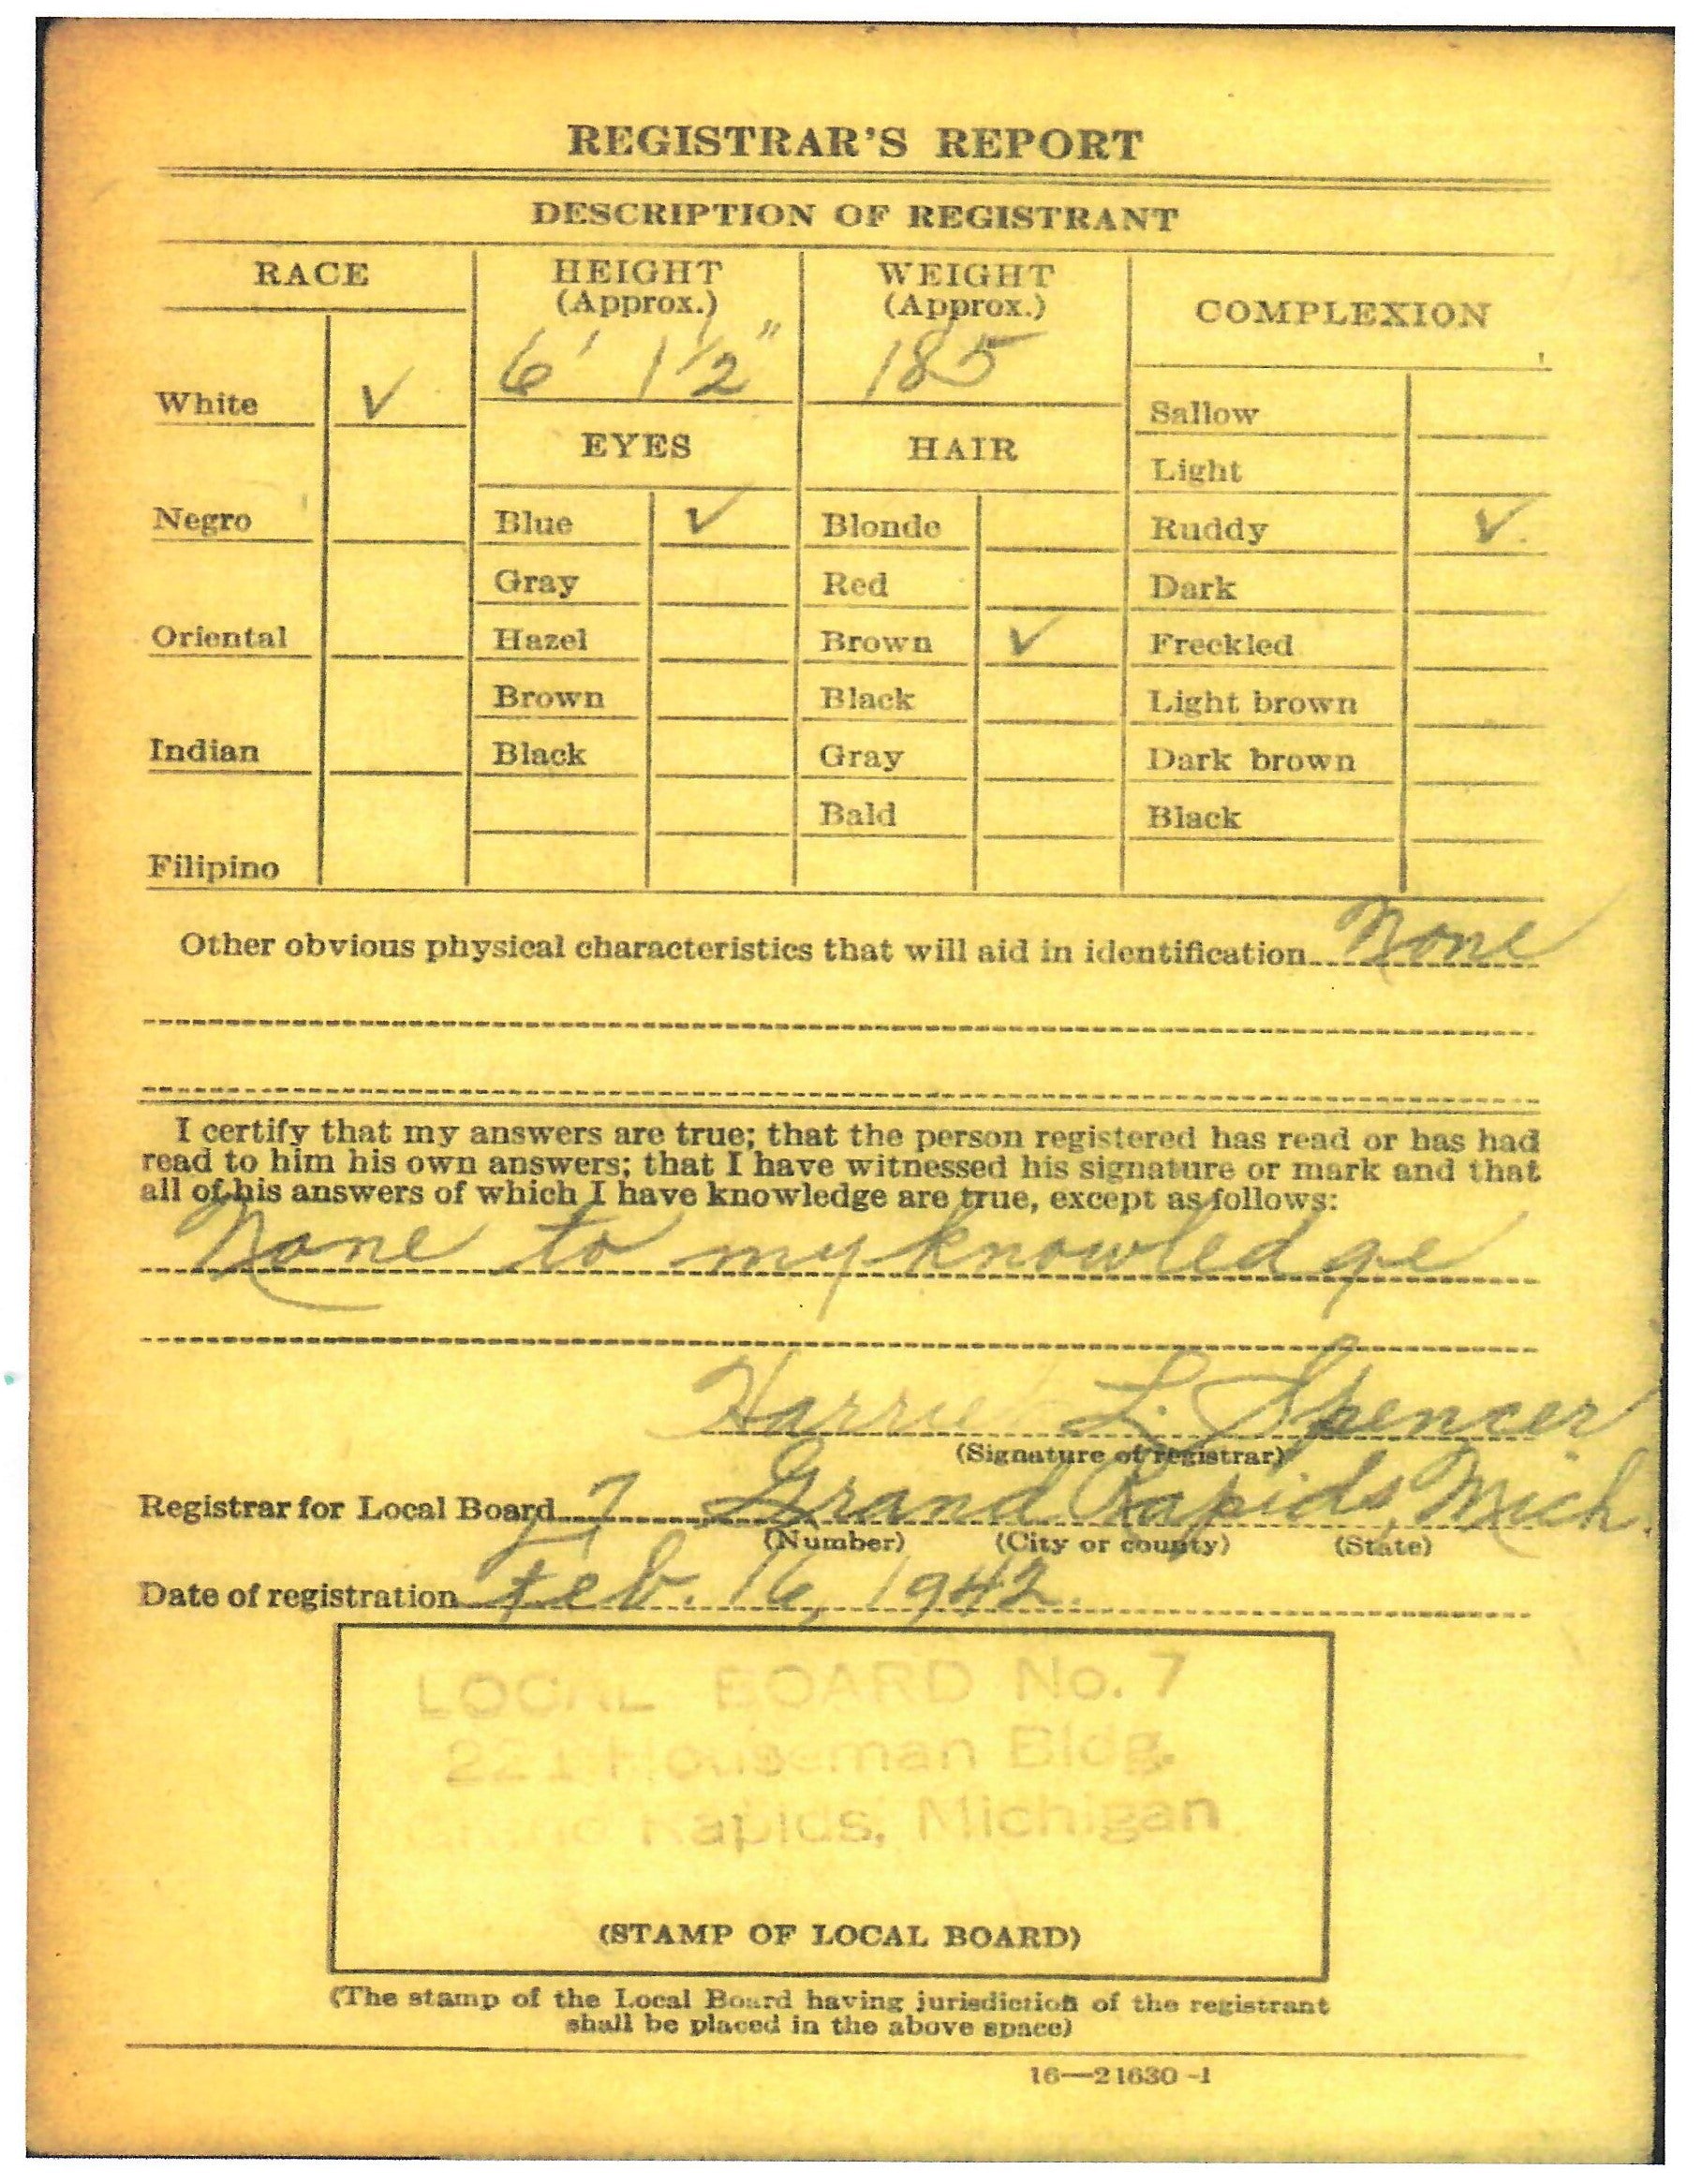 REGISTRAR'S REPORT
DESCRIPTION OF REGISTRANT
RACE
White ✓
Negro
Oriental
Indian
Filipino
HEIGHT
(Approx.)
6' 1 1/2"
EYES
Blue ✓
Gray
Hazel
Brown
Black
WEIGHT
(Approx.)
185
HAIR
Blonde
Red
Brown ✓
Black
Gray
Bald
COMPLEXION
Sallow
Light
Ruddy ✓
Dark
Freckled
Light brown
Dark brown
Black
Other obvious physical characteristics that will aid in identification None
I certify that my answers are true; that the person registered has read or has had
read to him his own answers; that I have witnessed his signature or mark and that
all of his answers of which I have knowledge are true, except as follows:
None to my knowledge
Harriet L. Spencer
(Signature of registrar)
Registrar for Local Board 7 Grand Rapids, Mich.
(Number) (City or county) (State)
Date of registration Feb. 16, 1942.
LOCAL BOARD No. 7
221 Houseman Bldg.
Grand Rapids, Michigan
(STAMP OF LOCAL BOARD)
(The stamp of the Local Board having jurisdiction of the registrant
shall be placed in the above space)
16—21630-1